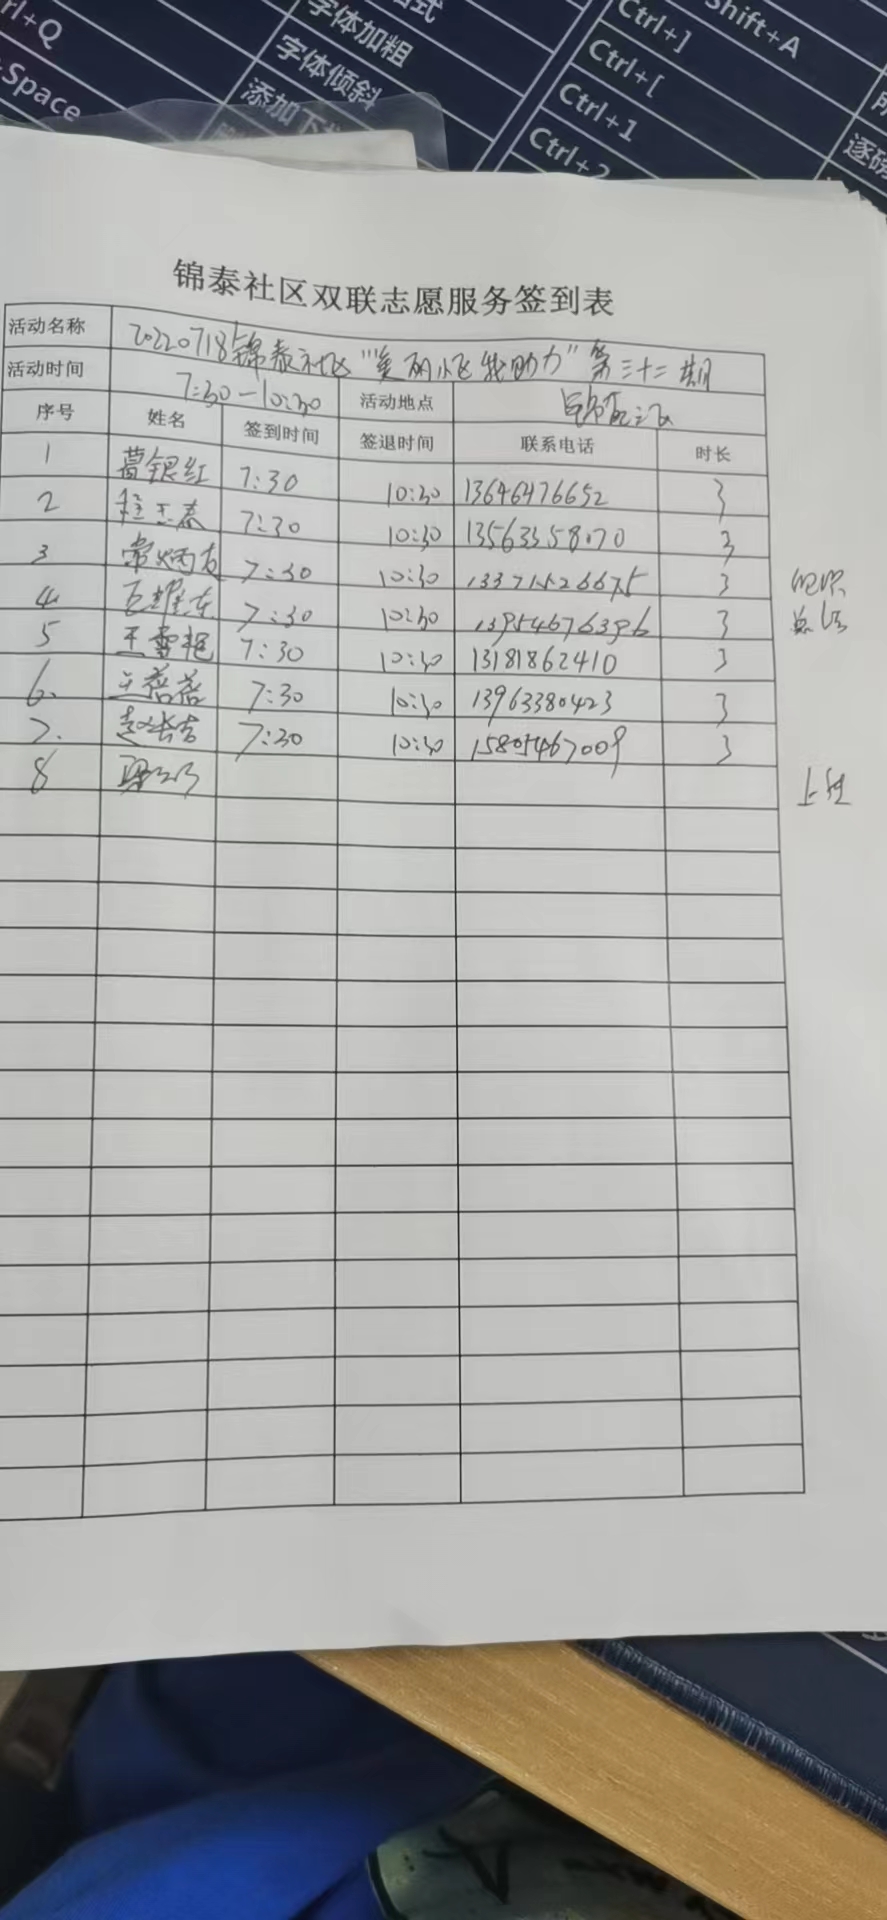 rl+Q
Space
字体加粗
字体倾斜
添加下
Ctrl+]
Ctrl+[
Ctrl+1
Ctrl+2
Shift+A
逐磅
锦泰社区双联志愿服务签到表
活动名称 20220718锦泰社区"美丽小区我助力"第三十二期
活动时间 7:30-10:30 活动地点
序号 姓名 签到时间 签退时间 联系电话 时长
1 葛银红 7:30 10:30 13646476652 3
2 7:30 10:30 13563358070 3
3 常炳友 7:30 10:30 13371526675 3
4 7:30 10:30 13954676396 3
5 王雪艳 7:30 10:30 13181862410 3
6. 王蓓蓓 7:30 10:30 13963380423 3
7. 赵长吉 7:30 10:30 15805467009 3
8
组织
总结
上传